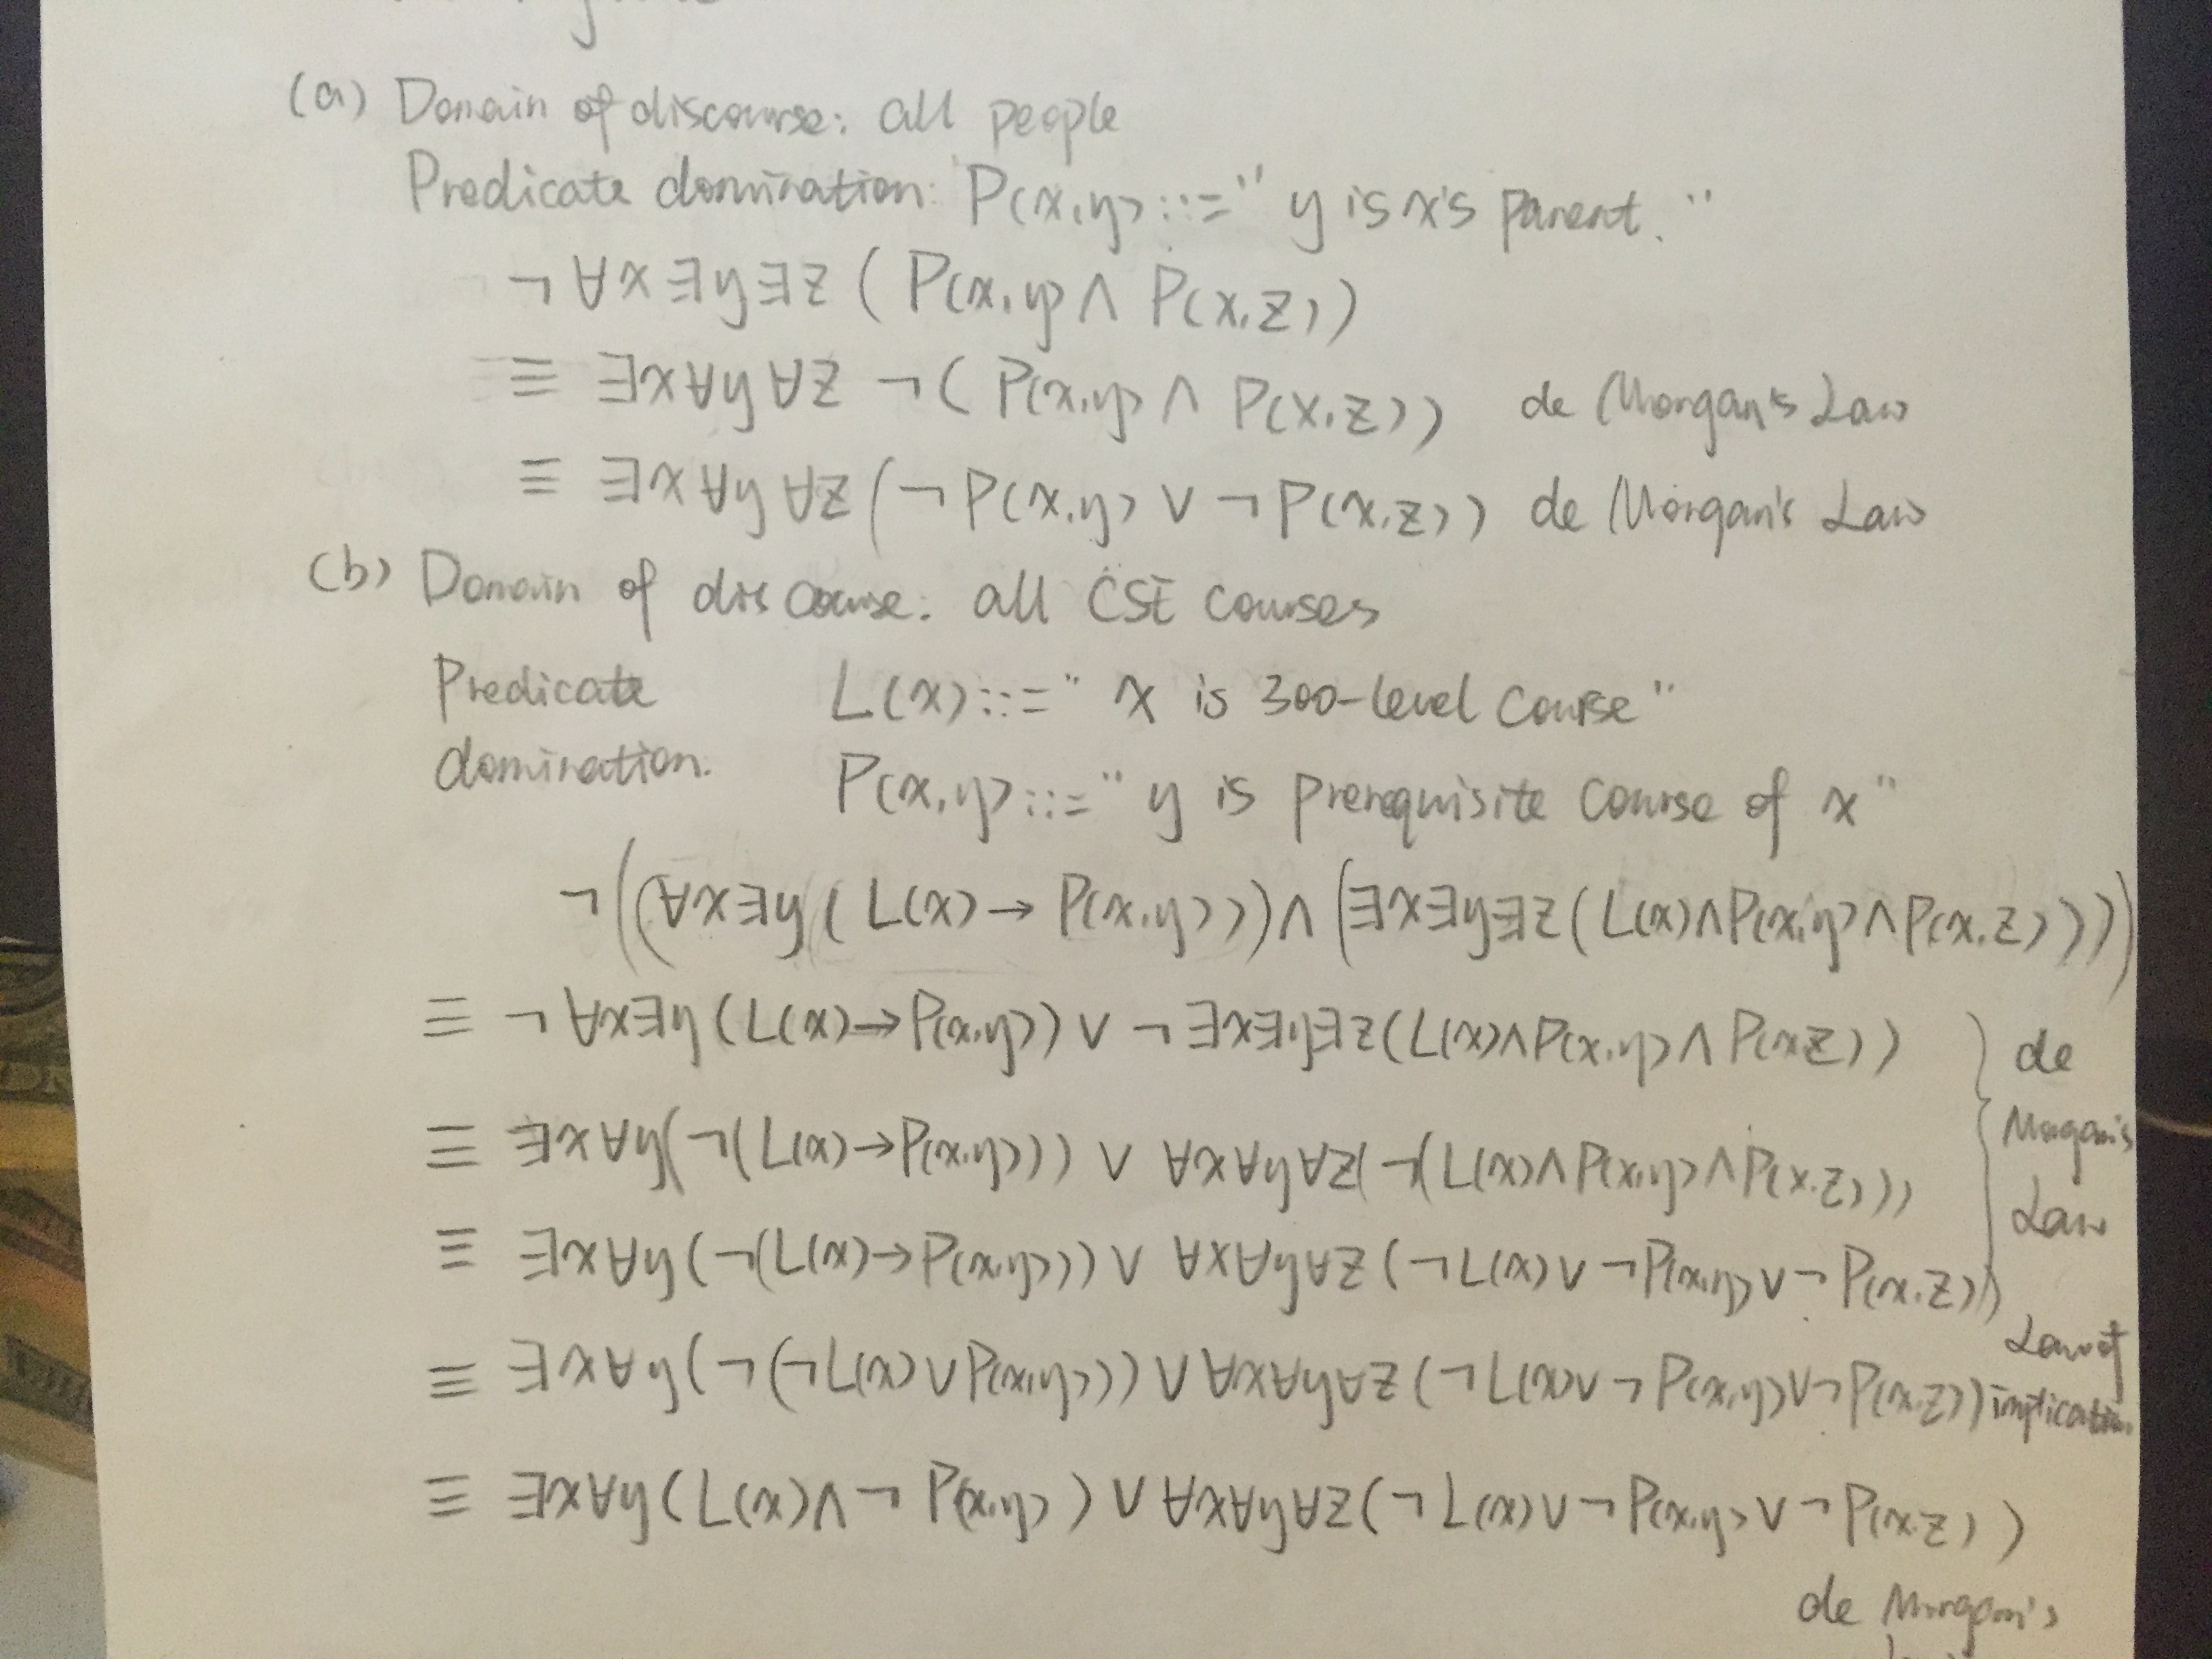 (a) Domain of discourse: all people
Predicate domination: P(x,y) ::= "y is x's parent."
¬∀x∃y∃z(P(x,y)∧P(x,z))
≡ ∃x∀y∀z ¬(P(x,y)∧P(x,z)) de Morgan's Law
≡ ∃x∀y∀z(¬P(x,y)∨¬P(x,z)) de Morgan's Law
(b) Domain of discourse: all CSE courses
Predicate L(x) ::= "x is 300-level course"
domination. P(x,y) ::= "y is prerequisite course of x"
¬((∀x∃y(L(x)→P(x,y)))∧(∃x∃y∃z(L(x)∧P(x,y)∧P(x,z))))
≡ ¬∀x∃y(L(x)→P(x,y))∨¬∃x∃y∃z(L(x)∧P(x,y)∧P(x,z)) de
≡ ∃x∀y(¬(L(x)→P(x,y)))∨∀x∀y∀z(¬(L(x)∧P(x,y)∧P(x,z))) Morgan's
Law
≡ ∃x∀y(¬(L(x)→P(x,y)))∨∀x∀y∀z(¬L(x)∨¬P(x,y)∨¬P(x,z))
Law of
≡ ∃x∀y(¬(¬L(x)∨P(x,y)))∨∀x∀y∀z(¬L(x)∨¬P(x,y)∨¬P(x,z)) implication.
≡ ∃x∀y(L(x)∧¬P(x,y))∨∀x∀y∀z(¬L(x)∨¬P(x,y)∨¬P(x,z))
de Morgan's